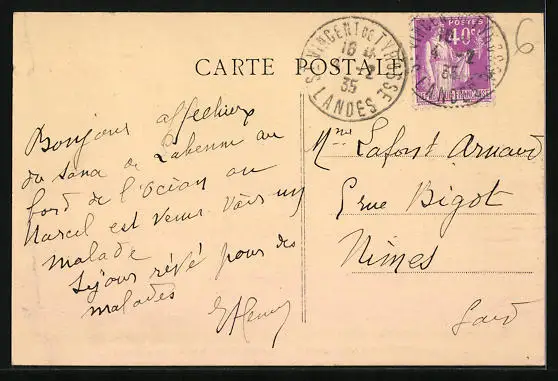 CARTE POSTALE
ST VINCENT DE TYROSSE
16
4 -2
35
LANDES
POSTES
40c
6
Bonjour affectueux
du sana de Labenne au
bord de l'Océan où
Marcel est venu voir un
malade
Séjour rêvé pour des
malades
Mme Lafont Arnaud
rue Bigot
Nimes
Gard